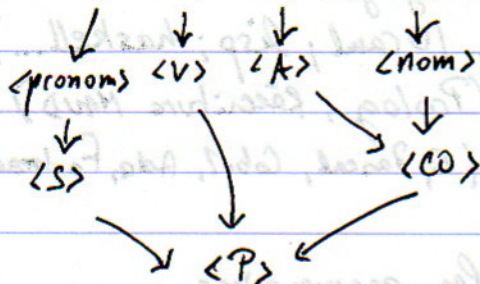 <pronom> <V> <A> <nom>
<S> <CO>
<P>